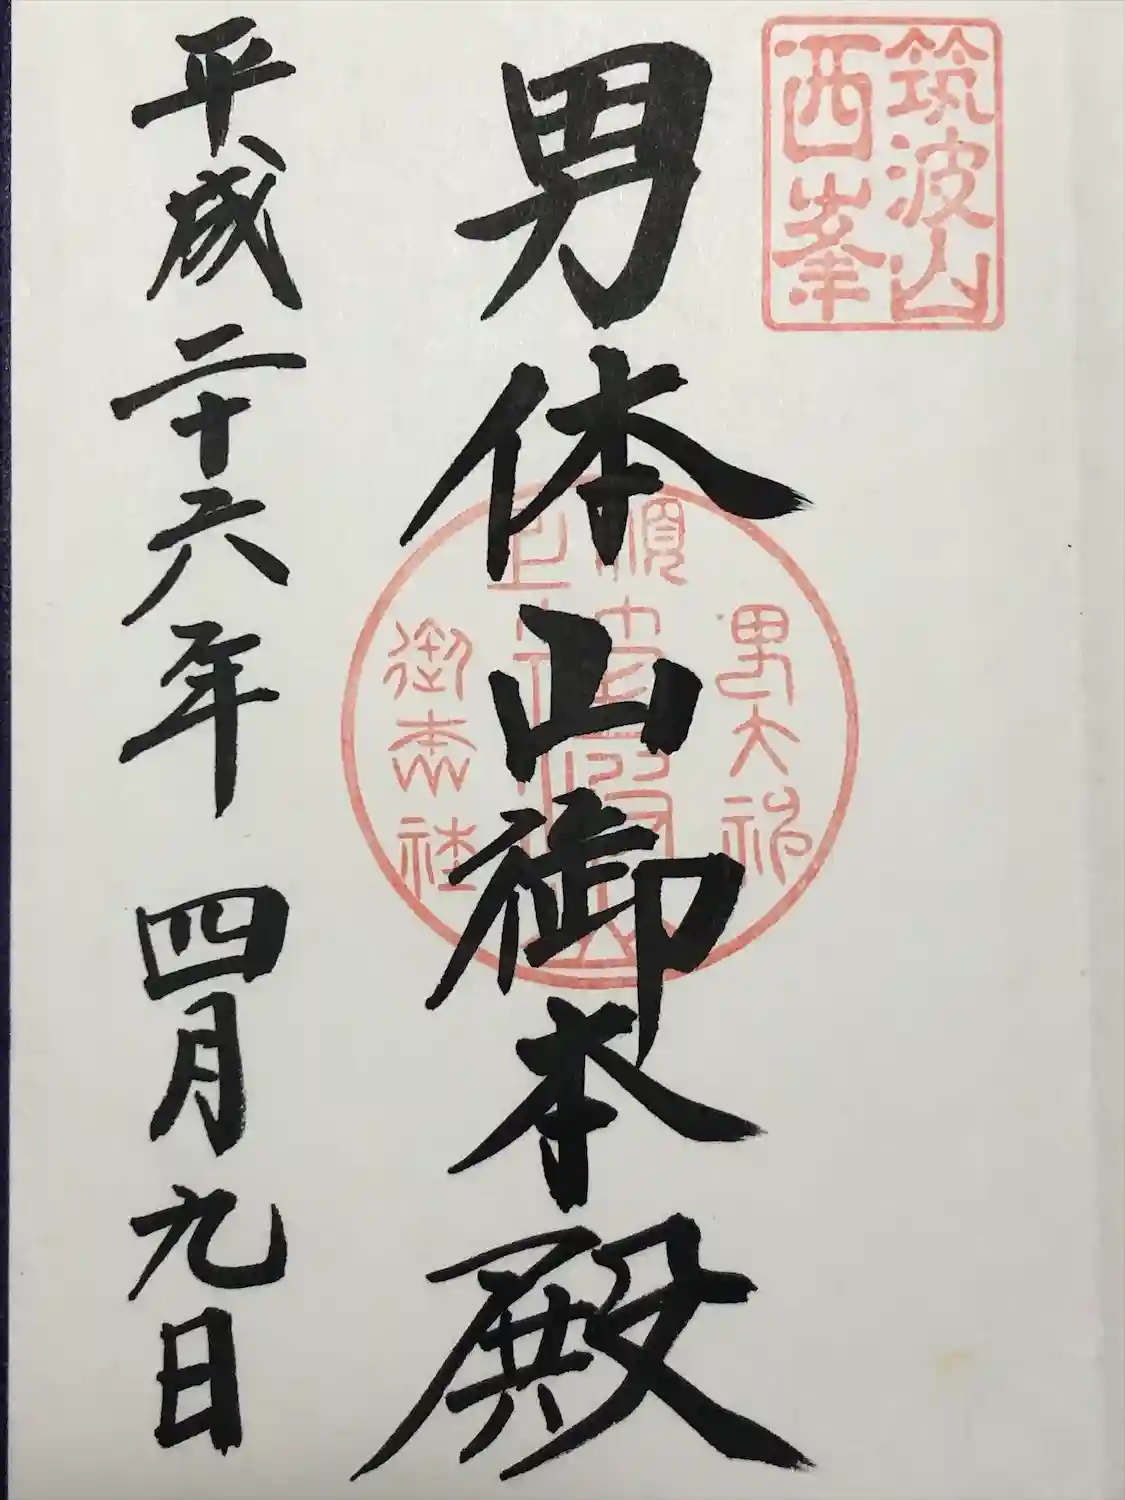 筑波山
西峯
男体山御本殿
平成二十六年 四月九日
男大神
御本社